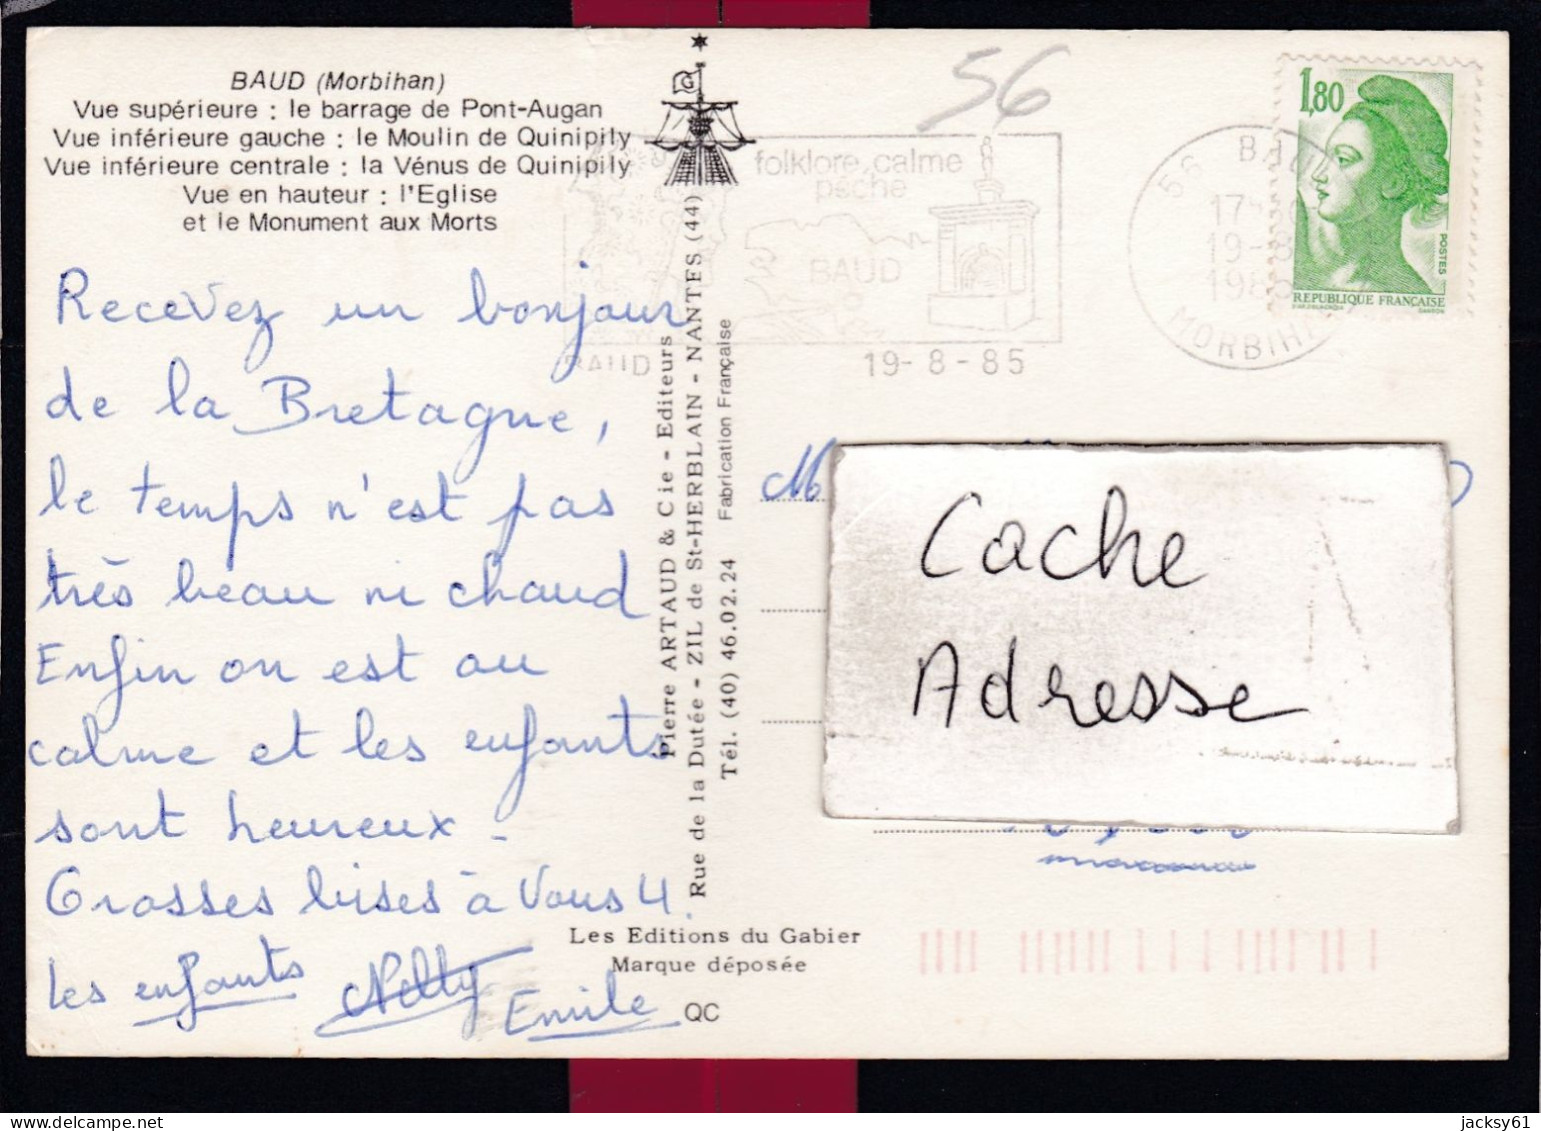 BAUD (Morbihan)
Vue supérieure : le barrage de Pont-Augan
Vue inférieure gauche : le Moulin de Quinipily
Vue inférieure centrale : la Vénus de Quinipily
Vue en hauteur : l'Eglise
et le Monument aux Morts
Recevez un bonjour
de la Bretagne,
le temps n'est pas
très beau ni chaud
Enfin on est au
calme et les enfants
sont heureux -
Grosses bises à vous 4.
les enfants Nelly Emile
Pierre ARTAUD & Cie - Editeurs
Rue de la Dutée - ZIL de St-HERBLAIN - NANTES (44)
Tél. (40) 46.02.24 Fabrication Française
Les Editions du Gabier
Marque déposée
QC
56
folklore, calme
pêche
BAUD
BAUD 19-8-85
56 BAUD
17
19-8
198
MORBIHAN
1,80
POSTES
REPUBLIQUE FRANÇAISE
M
Cache
Adresse
jacksy61